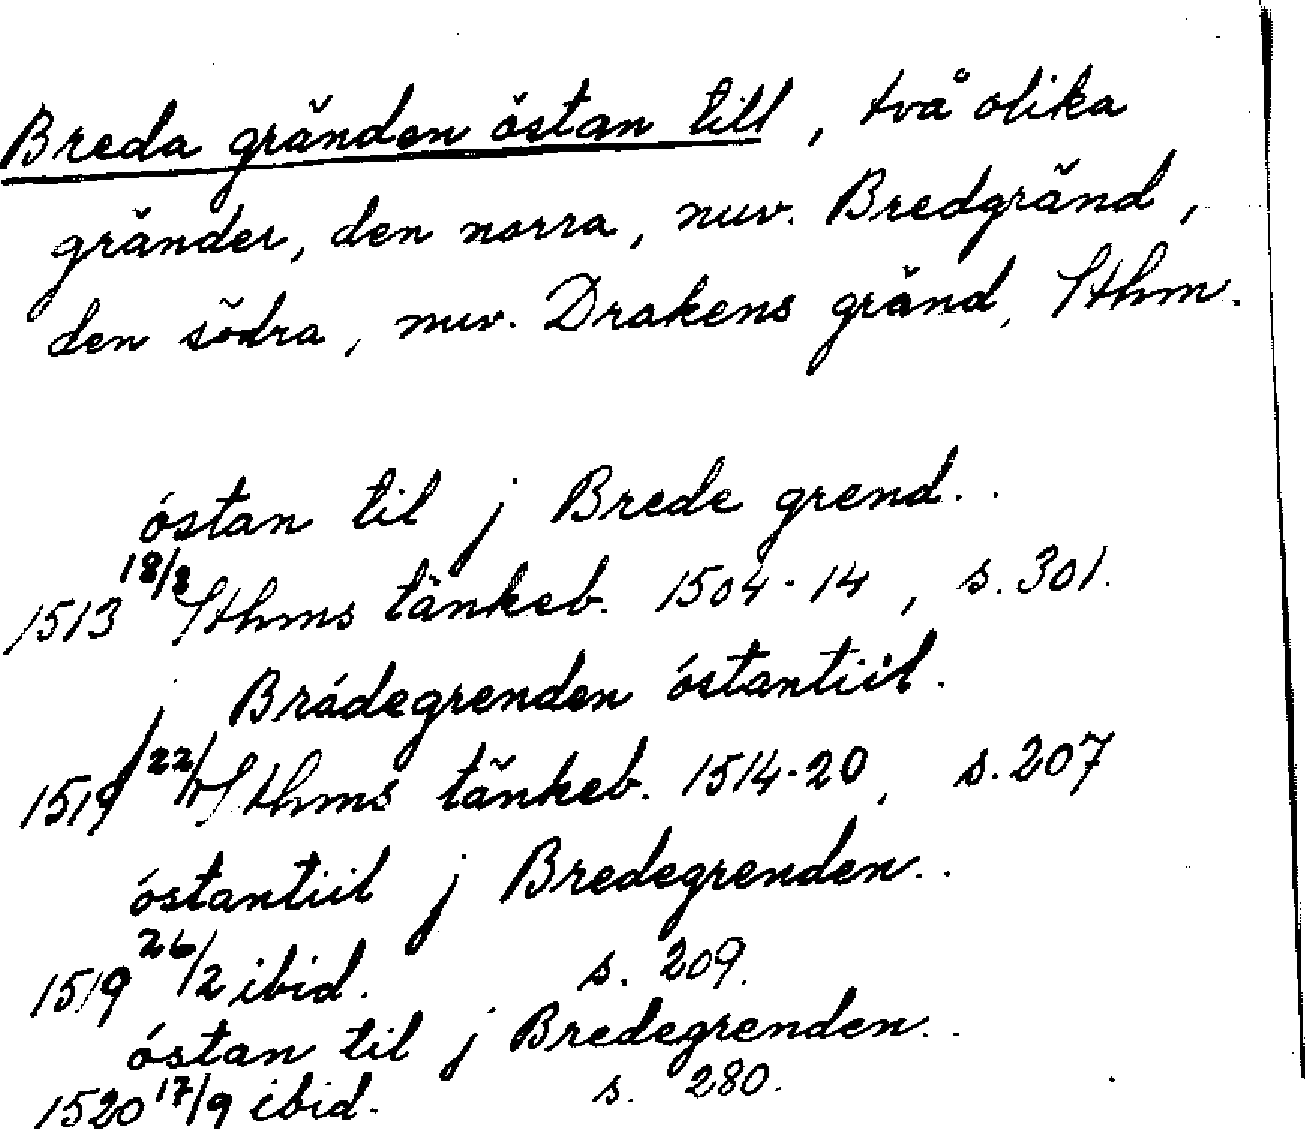 Breda gränden östan till, två olika
gränder, den norra, nuv. Bredgränd,
den södra, nuv. Drakens gränd, Sthm.
óstan til j Brede grend..
1513 18/8 Sthms tänkeb. 1504-14, s. 301.
j Brådegrenden óstantiil.
1519 22/ Sthms tänkeb. 1514-20, s. 207
óstantiil j Bredegrenden..
1519 26/2 ibid. s. 209.
óstan til j Bredegrenden..
1520 17/9 ibid. s. 280.